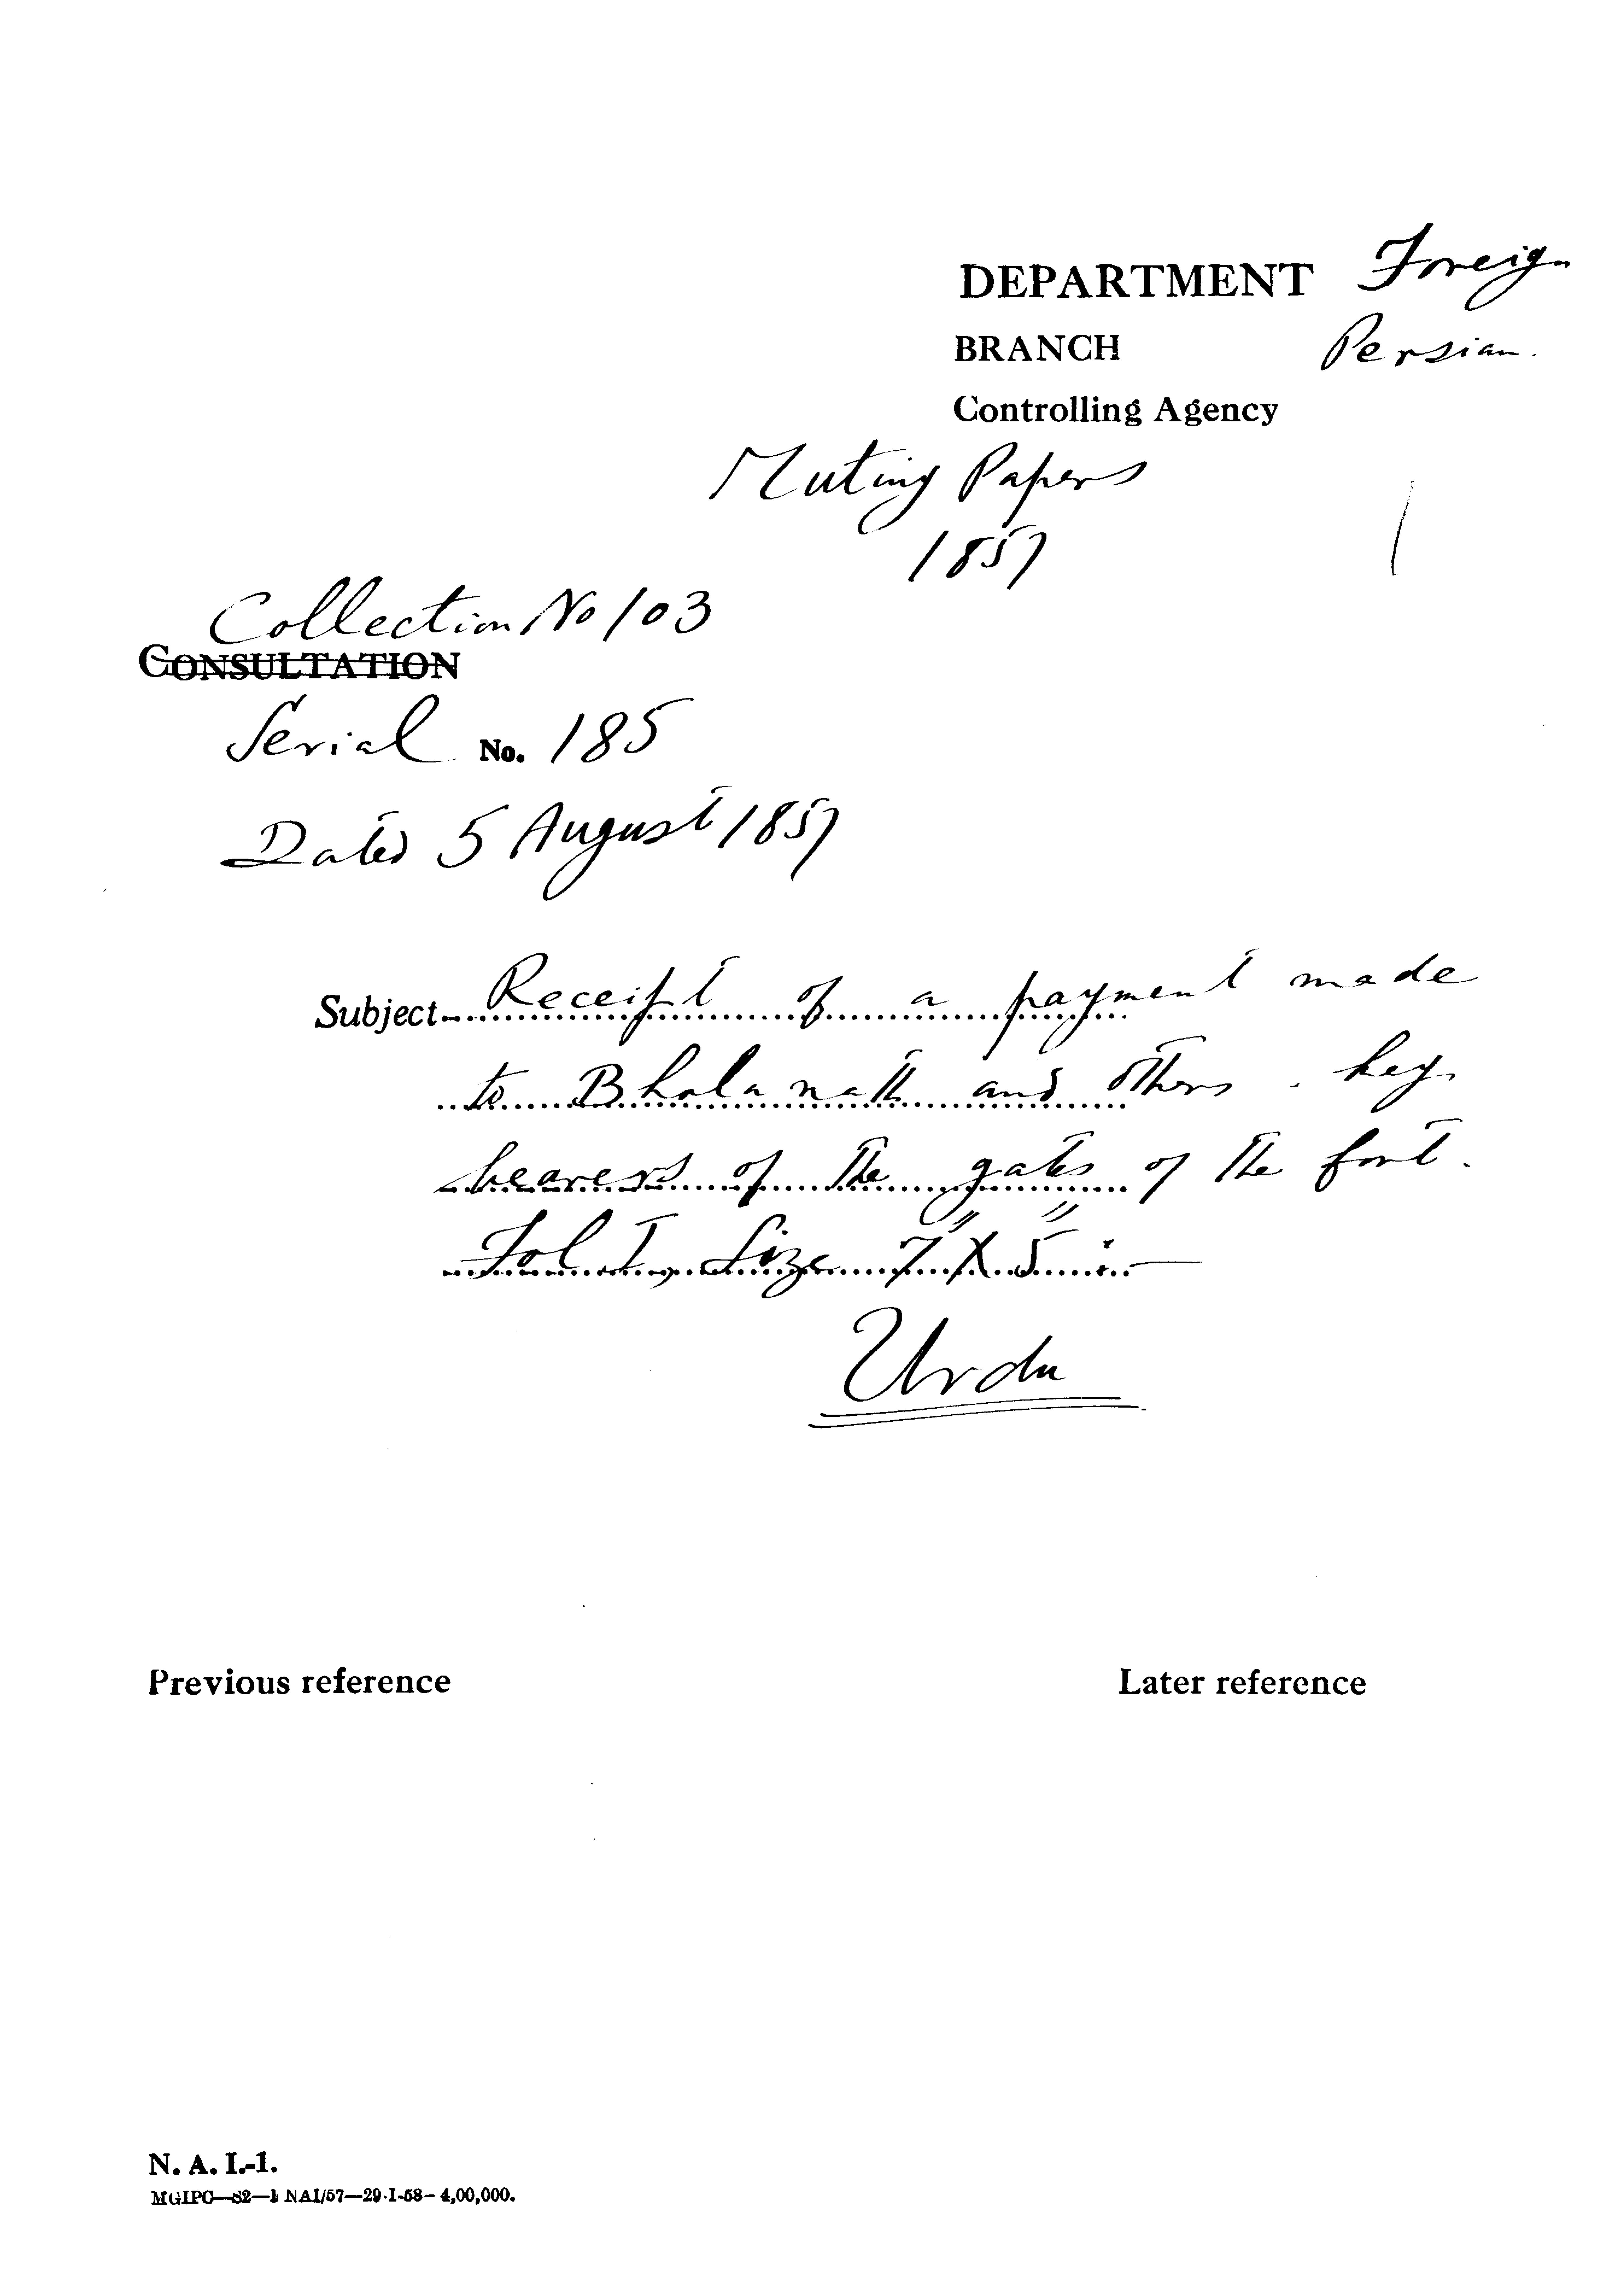 DEPARTMENT Foreign
BRANCH Persian.
Controlling Agency
Mutiny Papers
1857
Collection No 103
CONSULTATION
Serial No. 185
Dated 5 August 1857
Subject Receipt of a payment made
to Bhola nath and others. key
bearers of the gates of the fort.
Fol I, Size 7" X 5" :—
Urdu
Previous reference
Later reference
N. A. I.-1.
MGIPC—S2—1 NAI/57—29-1-58—4,00,000.